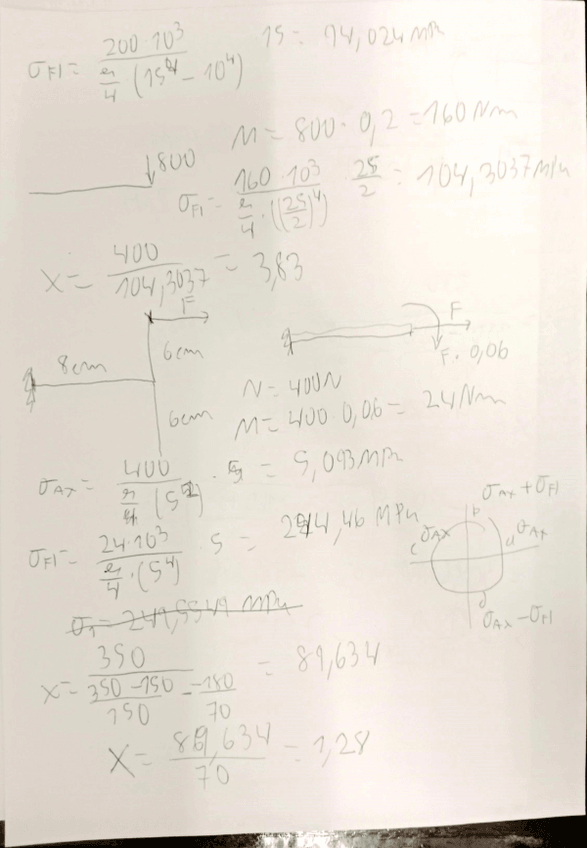 σF1 = 200·10³ / (π/4 (15⁴ − 10⁴)) 15 = 94,024 MPa
M = 800 · 0,2 = 160 Nm
↓800
σF1 = 160·10³ / (π/4 · ((25/2)⁴)) · 25/2 = 104,3037 MPa
X = 400 / 104,3037 = 3,83
F
8cm 6cm F
F · 0,06
6cm N = 400N
M = 400 · 0,06 = 24 Nm
σAx = 400 / (π (5²)) = 5,093 MPa
σAx + σF1
b
c σAx a σAx
σF1 = 24·10³ / (π/4 · (5⁴)) · 5 = 244,46 MPa
d
σAx − σF1
σ1 = 249,5549 MPa
X = 350 / ((350 − 150)/150 = −180/70) = 89,634
X = 89,634 / 70 = 1,28